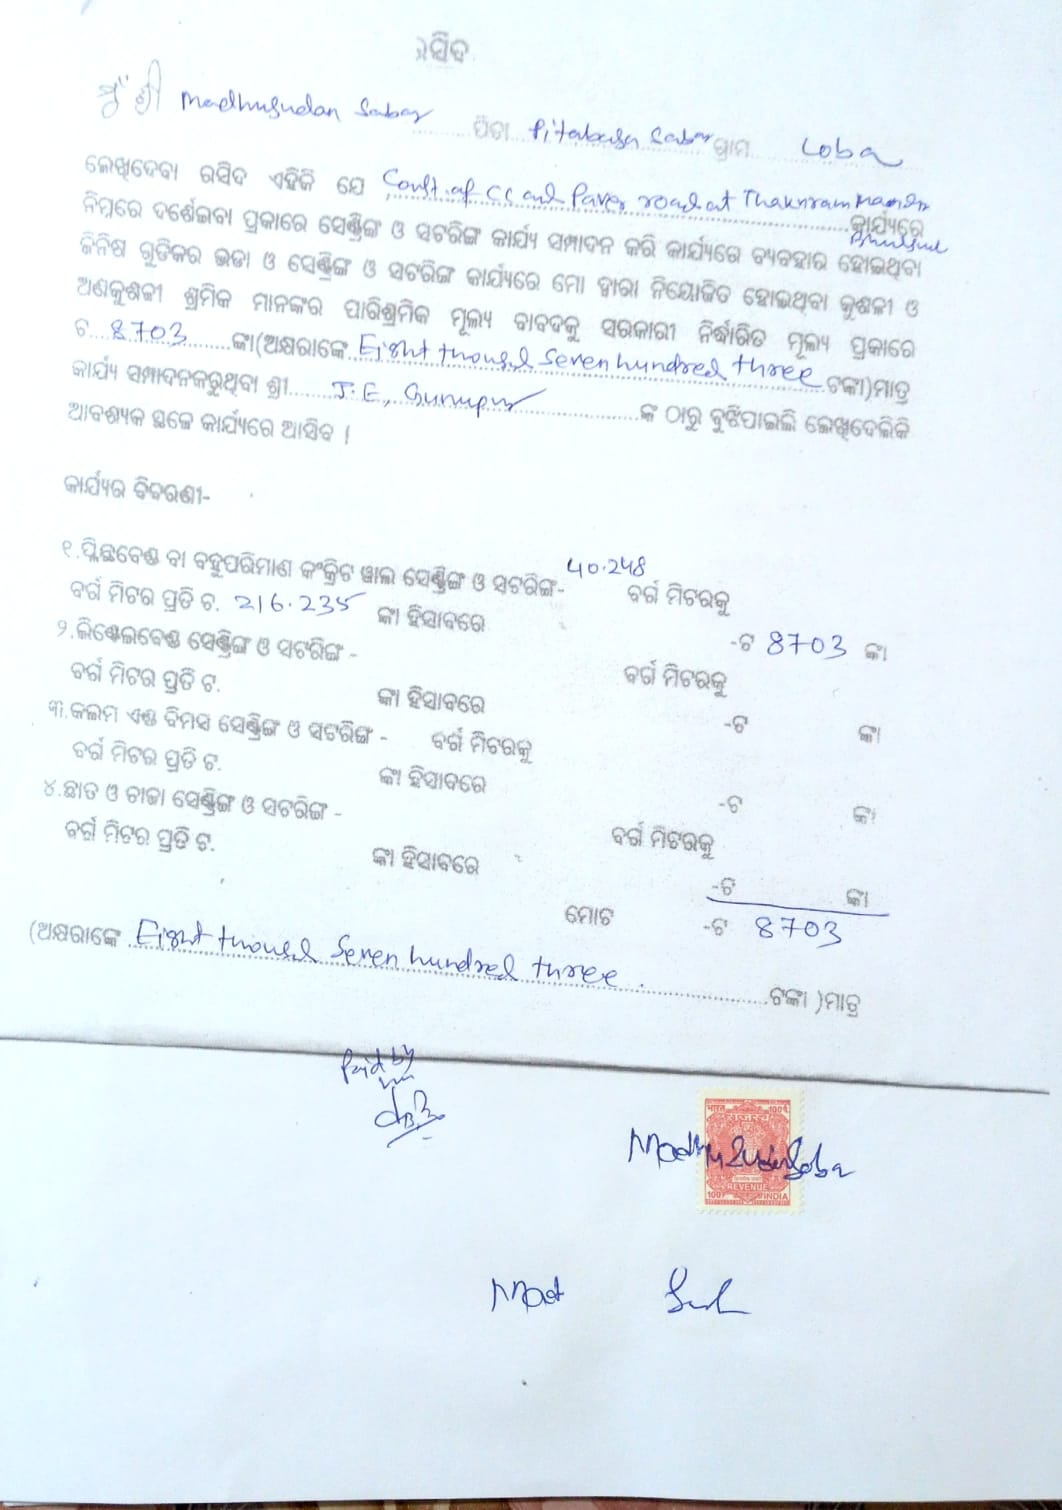 ରସିଦ
ମୁଁ ଶ୍ରୀ Madhusudan Sabar ପିତା Pitabasa Sabar ଗ୍ରାମ Loba
ଲେଖିଦେବା ରସିଦ ଏହିକି ଯେ Const. of CC and Paver road at Thakriram Mandir କାର୍ଯ୍ୟରେ
ନିମ୍ନରେ ଦର୍ଶେଇବା ପ୍ରକାରେ ସେଣ୍ଟ୍ରିଙ୍ଗ ଓ ସଟରିଙ୍ଗ କାର୍ଯ୍ୟ ସମ୍ପାଦନ କରି କାର୍ଯ୍ୟରେ ବ୍ୟବହାର ହୋଇଥିବା
ଜିନିଷ ଗୁଡିକର ଭଡା ଓ ସେଣ୍ଟ୍ରିଙ୍ଗ ଓ ସଟରିଙ୍ଗ କାର୍ଯ୍ୟରେ ମୋ ଦ୍ୱାରା ନିୟୋଜିତ ହୋଇଥିବା କୁଶଳୀ ଓ
ଅଣକୁଶଳୀ ଶ୍ରମିକ ମାନଙ୍କର ପାରିଶ୍ରମିକ ମୂଲ୍ୟ ବାବଦକୁ ସରକାରୀ ନିର୍ଦ୍ଧାରିତ ମୂଲ୍ୟ ପ୍ରକାରେ
ଟ 8703 ଙ୍କା(ଅକ୍ଷରାଙ୍କେ Eight thousd Seven hundred three ଟଙ୍କା)ମାତ୍ର
କାର୍ଯ୍ୟ ସମ୍ପାଦନକରୁଥିବା ଶ୍ରୀ J.E, Gunupur ଙ୍କ ଠାରୁ ବୁଝିପାଇଲି ଲେଖିଦେଲିକି
ଆବଶ୍ୟକ ସ୍ଥଳେ କାର୍ଯ୍ୟରେ ଆସିବ ।
କାର୍ଯ୍ୟର ବିବରଣୀ-
୧.ପ୍ଲିନ୍ଥବେଣ୍ଡ ବା ବହୁପରିମାଣ କଂକ୍ରିଟ ୱାଲ ସେଣ୍ଟ୍ରିଙ୍ଗ ଓ ସଟରିଙ୍ଗ- 40.248 ବର୍ଗ ମିଟରକୁ
ବର୍ଗ ମିଟର ପ୍ରତି ଟ. 216.235 ଙ୍କା ହିସାବରେ -ଟ 8703 ଙ୍କା
୨.ଲିଣ୍ଟେଲବେଣ୍ଡ ସେଣ୍ଟ୍ରିଙ୍ଗ ଓ ସଟରିଙ୍ଗ - ବର୍ଗ ମିଟରକୁ
ବର୍ଗ ମିଟର ପ୍ରତି ଟ. ଙ୍କା ହିସାବରେ -ଟ ଙ୍କା
୩.କଲମ ଏଣ୍ଡ ବିମସ ସେଣ୍ଟ୍ରିଙ୍ଗ ଓ ସଟରିଙ୍ଗ - ବର୍ଗ ମିଟରକୁ
ବର୍ଗ ମିଟର ପ୍ରତି ଟ. ଙ୍କା ହିସାବରେ -ଟ ଙ୍କା
୪.ଛାତ ଓ ଚାଜା ସେଣ୍ଟ୍ରିଙ୍ଗ ଓ ସଟରିଙ୍ଗ - ବର୍ଗ ମିଟରକୁ
ବର୍ଗ ମିଟର ପ୍ରତି ଟ. ଙ୍କା ହିସାବରେ -ଟ ଙ୍କା
ମୋଟ -ଟ 8703
(ଅକ୍ଷରାଙ୍କେ Eight thousd Seven hundred three ଟଙ୍କା )ମାତ୍ର
Paid by
भारत 100
राजस्व
REVENUE
100 INDIA